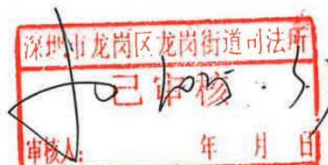 深圳市龙岗区龙岗街道司法所
已审核
审核人: 年 月 日